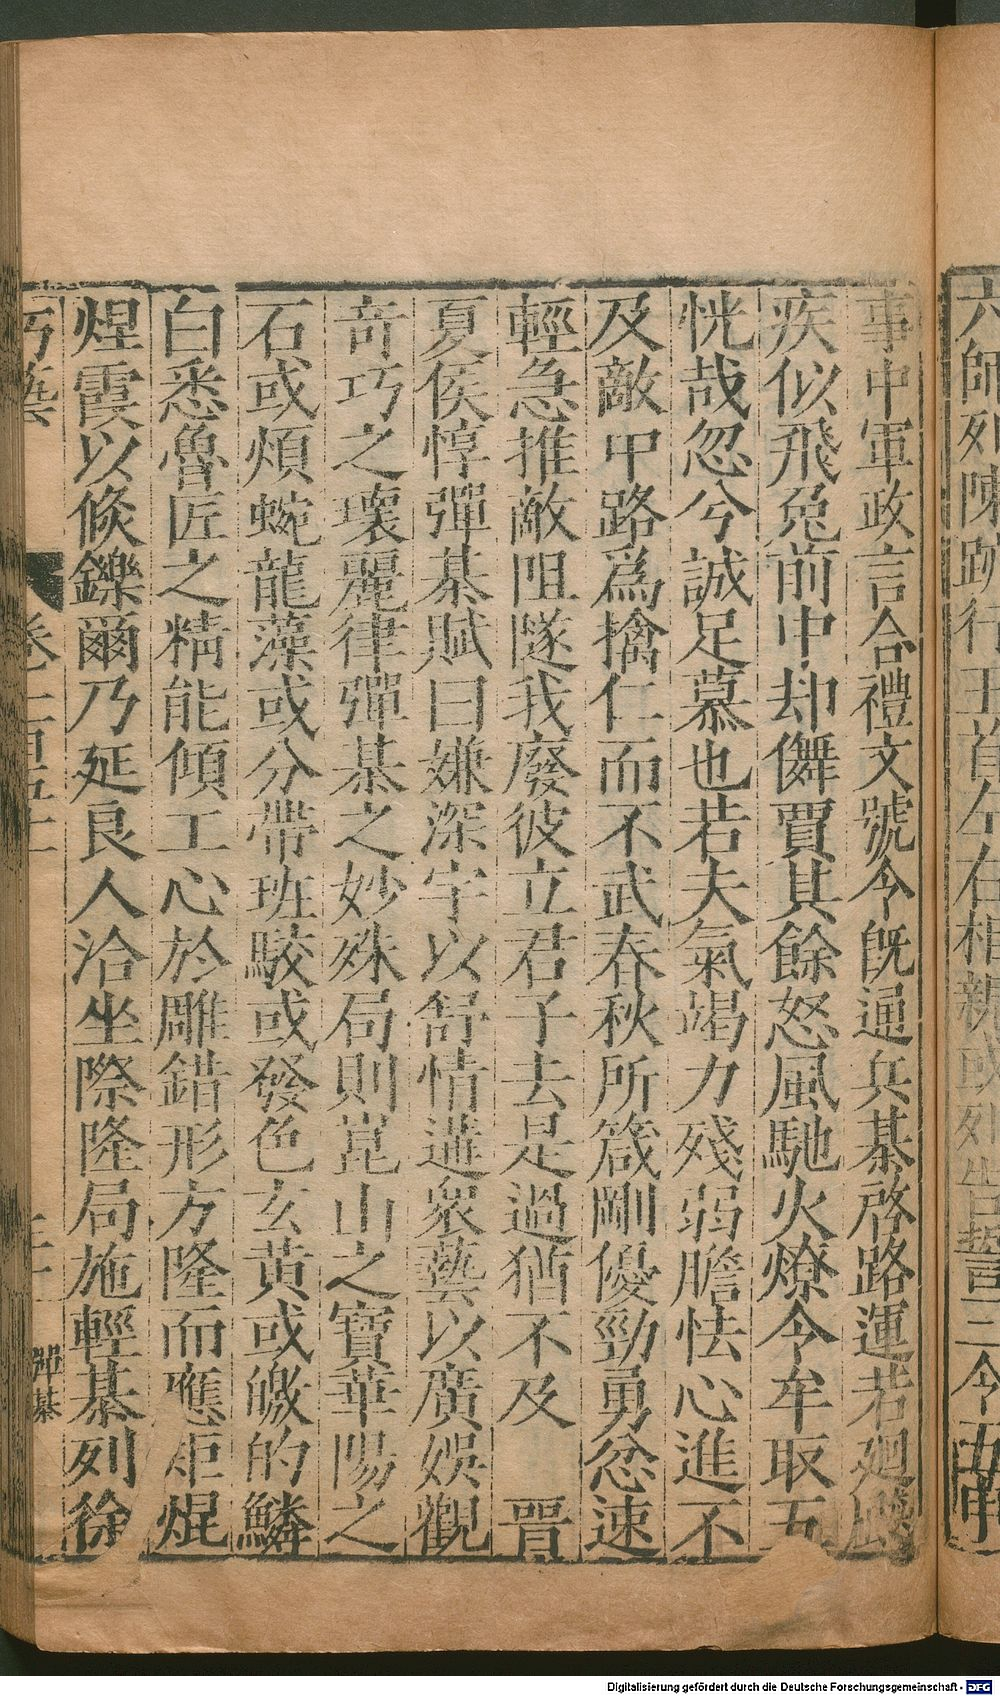 六師列陳跡行王首左右相親或列皆誓三令五申
事中軍政言合禮文號令旣通兵棊啓路運若廻飈
疾似飛兔前中却僲賈其餘怒風馳火燎令牟取五
恍哉忽兮誠足慕也若夫氣竭力殘弱膽怯心進不
及敵中路爲擒仁而不武春秋所箴剛優勁勇忿速
輕急推敵阻隧我廢彼立君子去是過猶不及 晉
夏侯惇彈棊賦曰嫌深宇以舒情遘衆藝以廣娛觀
奇巧之瓌麗律彈棊之妙殊局則崑山之寶華陽之
石或煩蜿龍藻或分帶班駮或發色玄黃或皦的鱗
白悉魯匠之精能傾工心於雕錯形方隆而應炬焜
煋霞以倏鑠爾乃延良人洽坐際隆局施輕棊列徐
巧藝 卷一百五十 彈棊
Digitalisierung gefördert durch die Deutsche Forschungsgemeinschaft - DFG